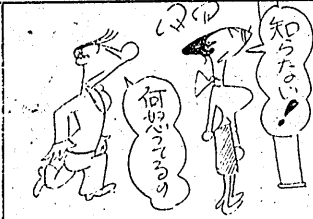 知らない!
何怒ってるの